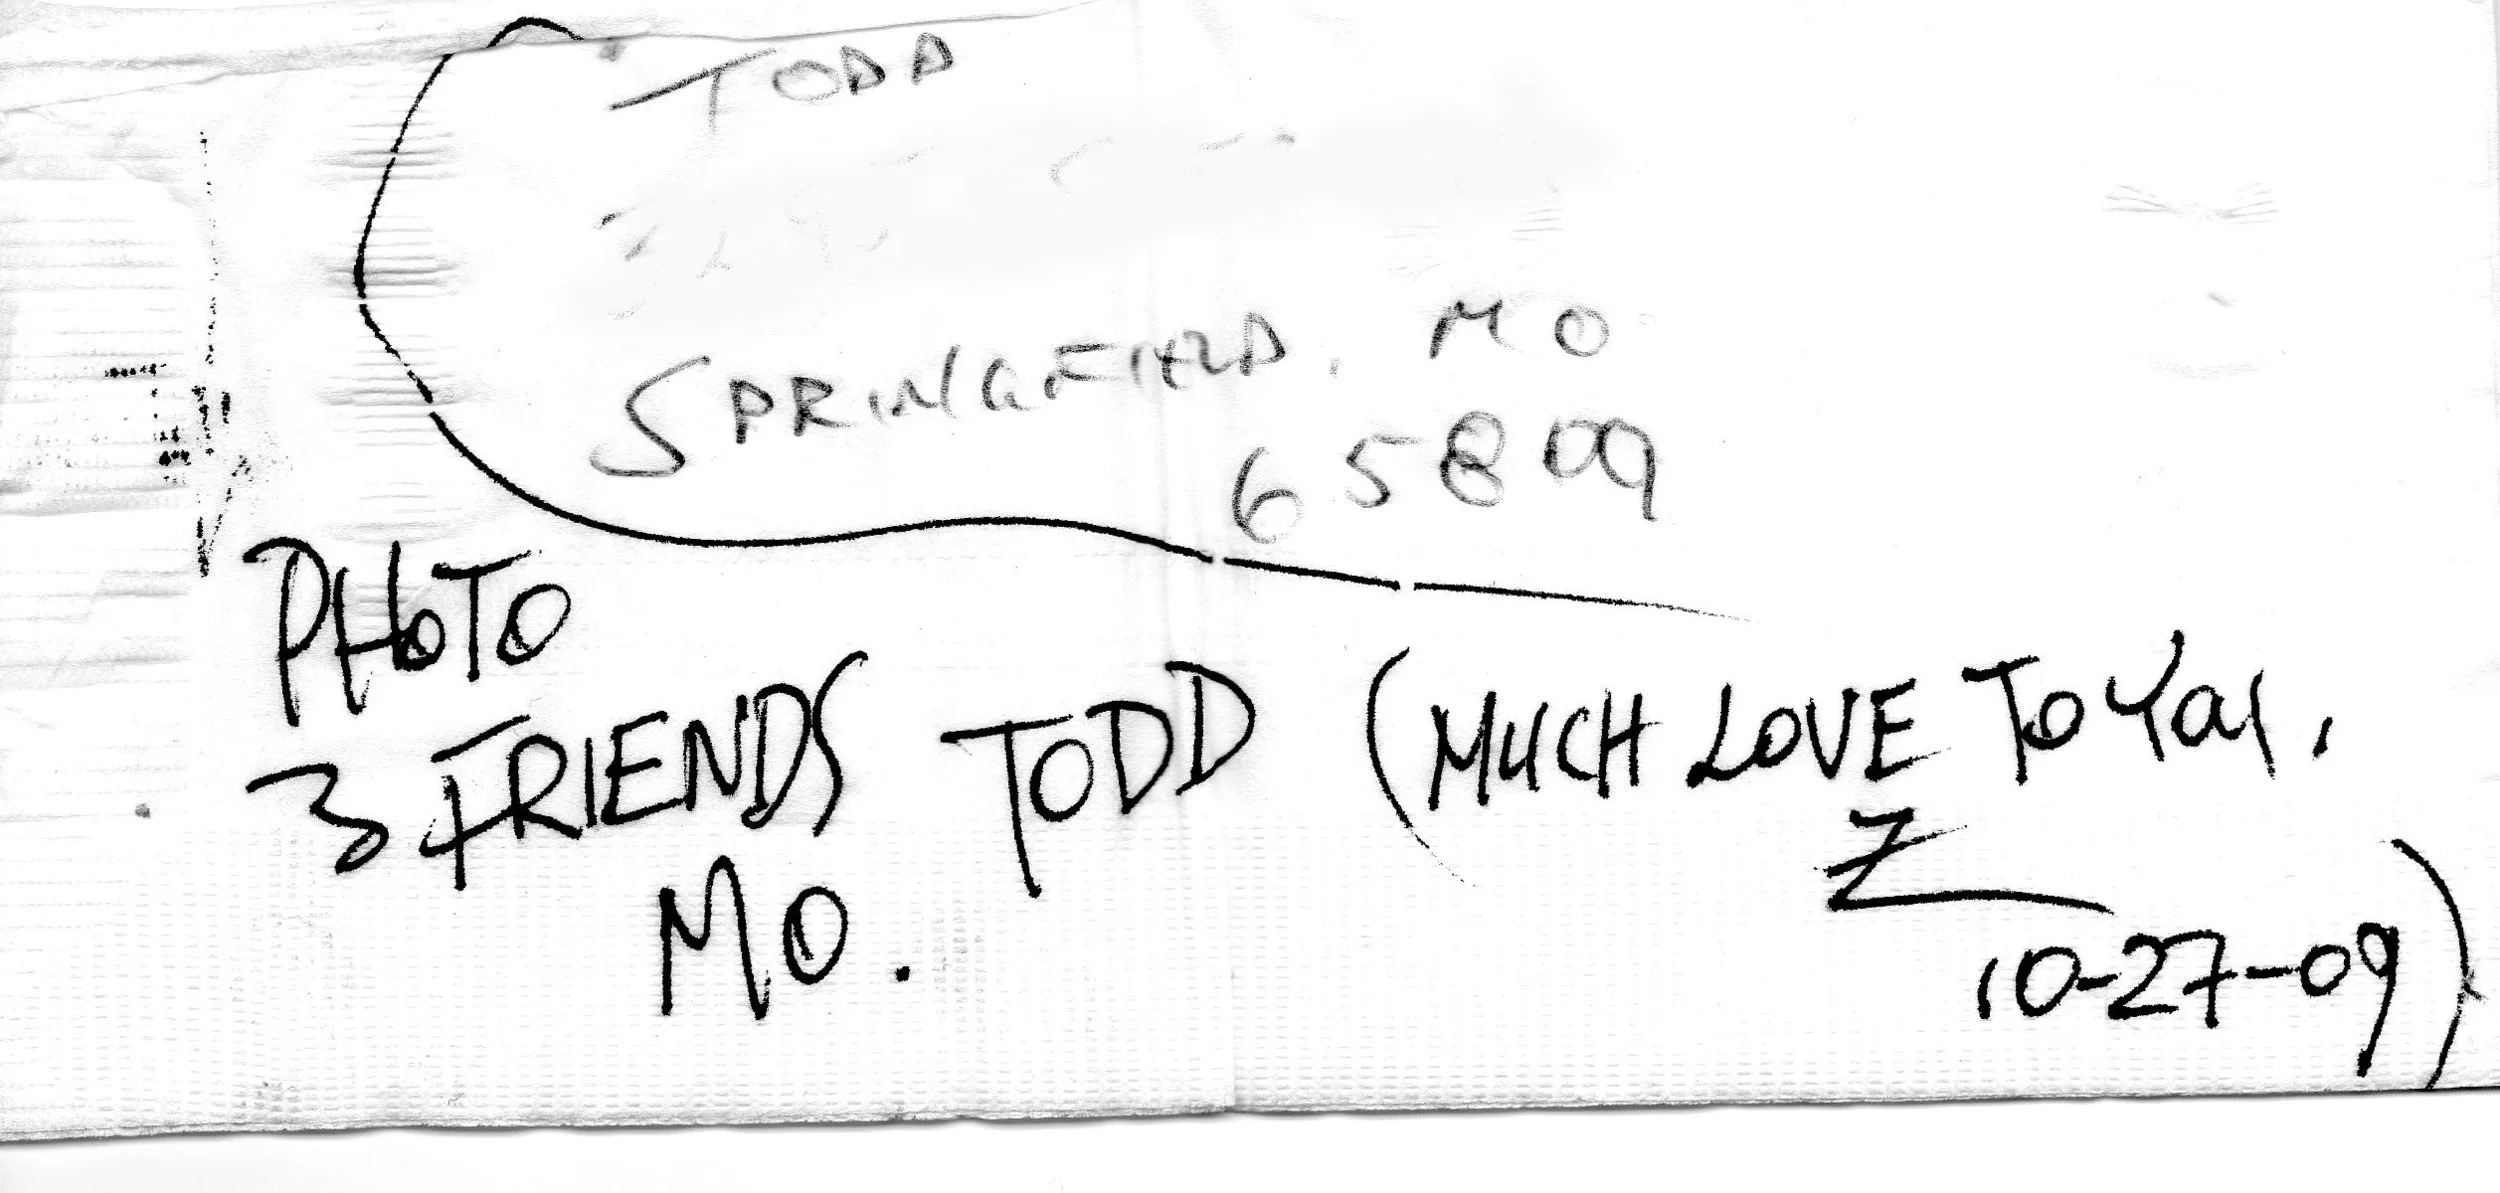 TODD
SPRINGFIELD, MO
65809
PHOTO
3 FRIENDS TODD (MUCH LOVE TO YA,
MO. Z
10-27-09)